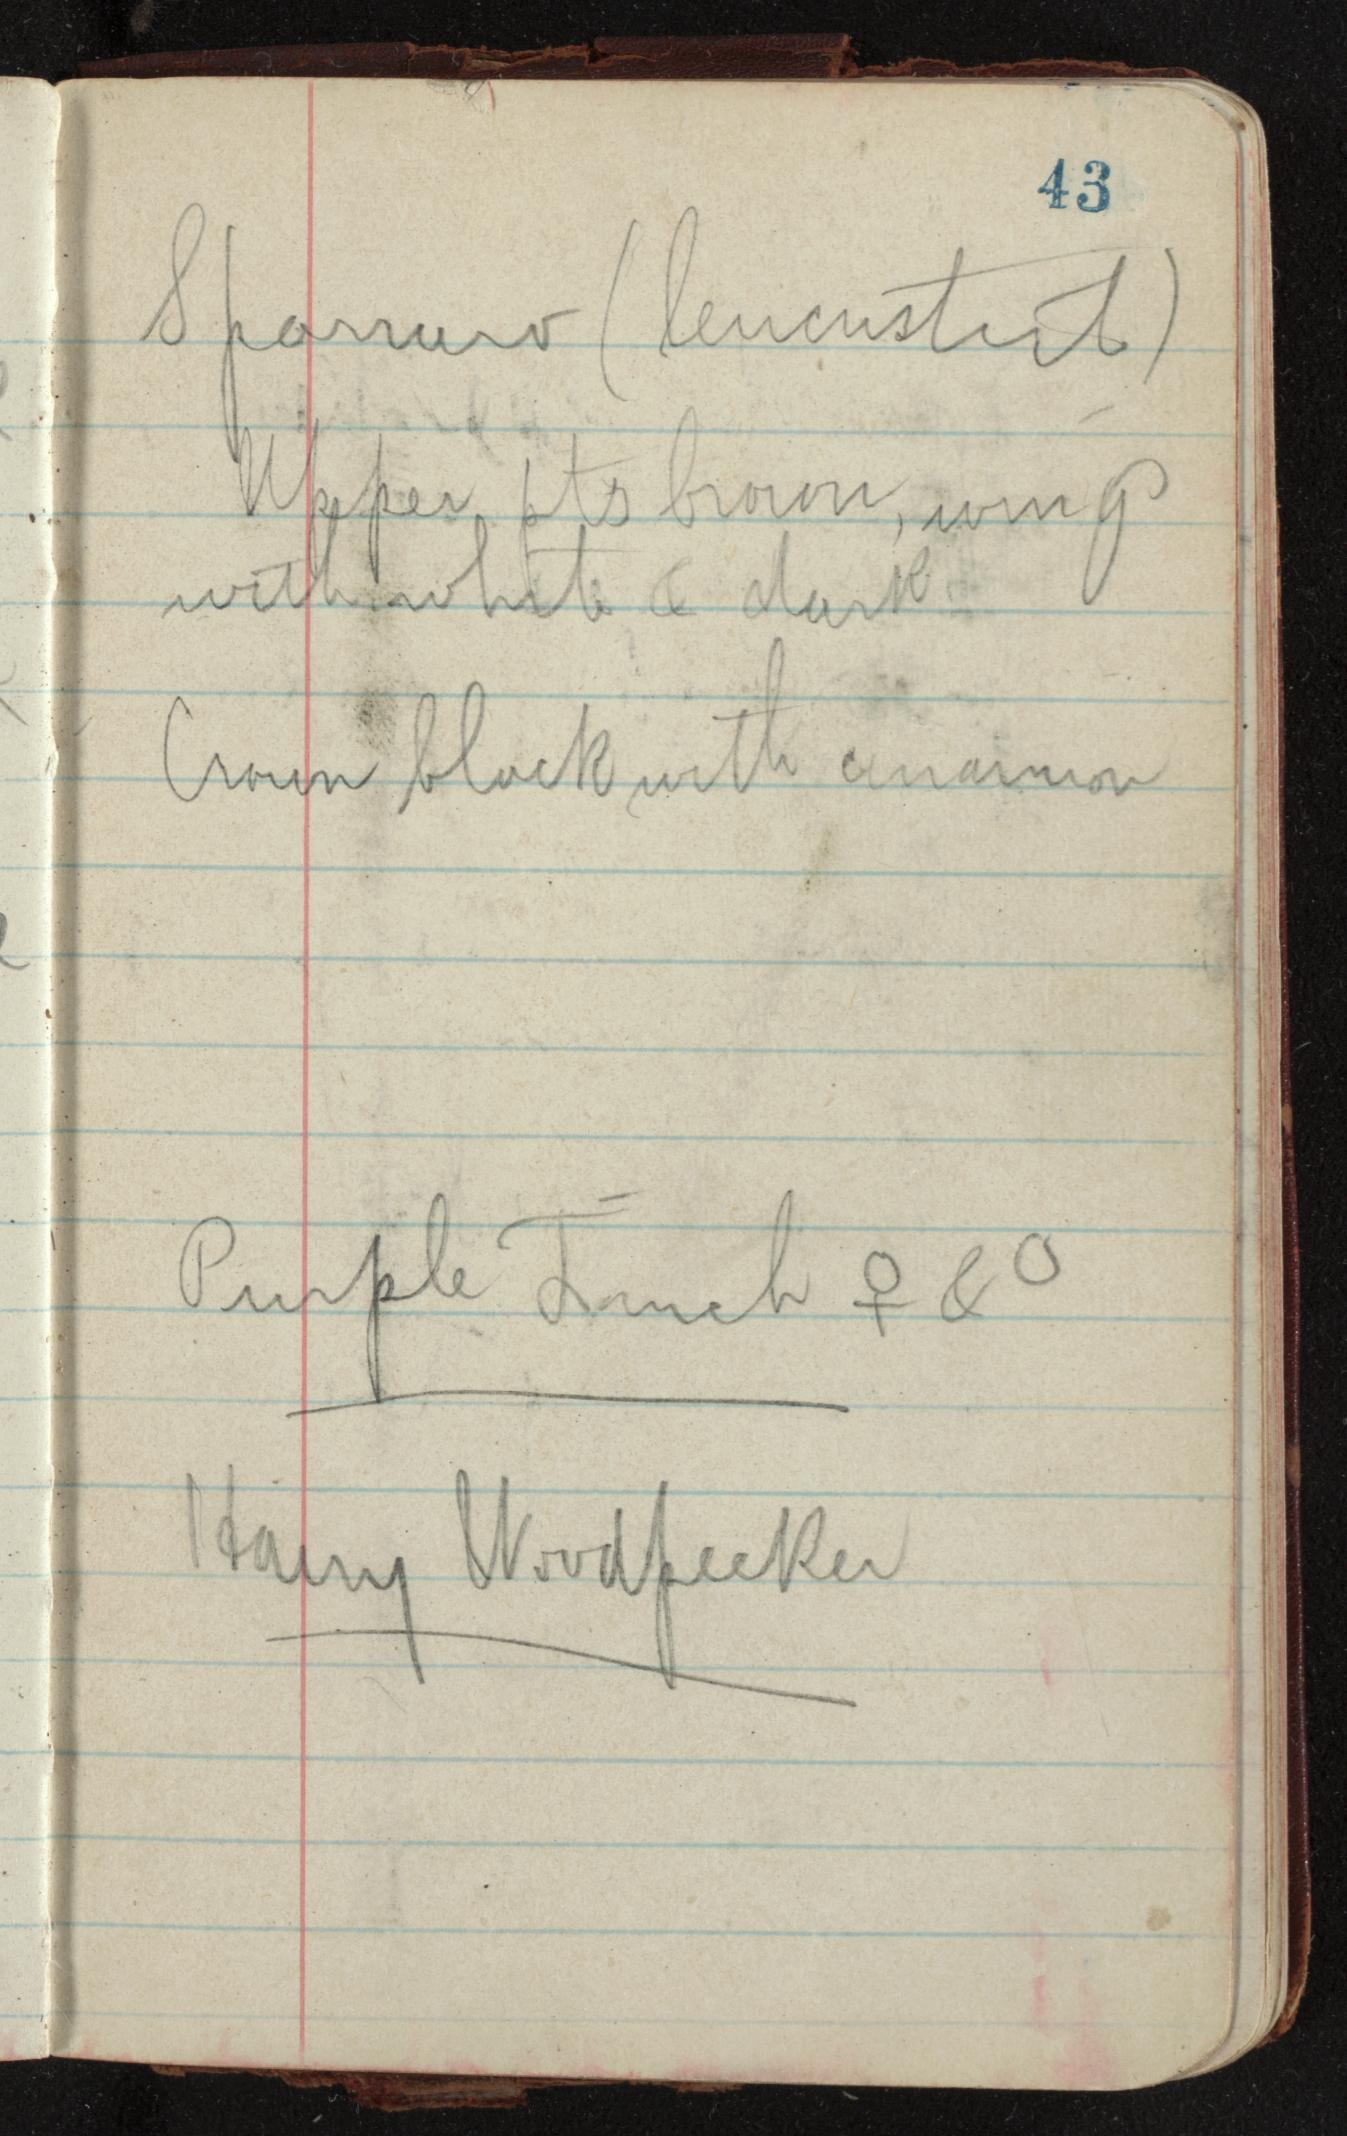 43
Sparrow (
Upper pts brown, wing
with white & dark
Crown black with cinnamon
Purple Finch ♀ & O
Hairy Woodpecker